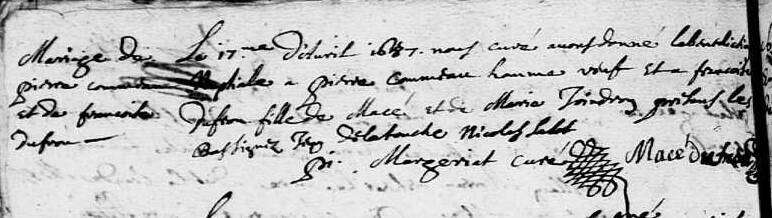 Mariage de
pierre
et de francoise
dufrou
Le 17.me d'avril 1687. nous curé avons donné la benediction
Nuptiale a pierre coumeau homme veuf et a francoise
dufrou fille de Macé et de Marie presens les
Jean Delatouche Nicolas
pi. Margeriat curé Macé